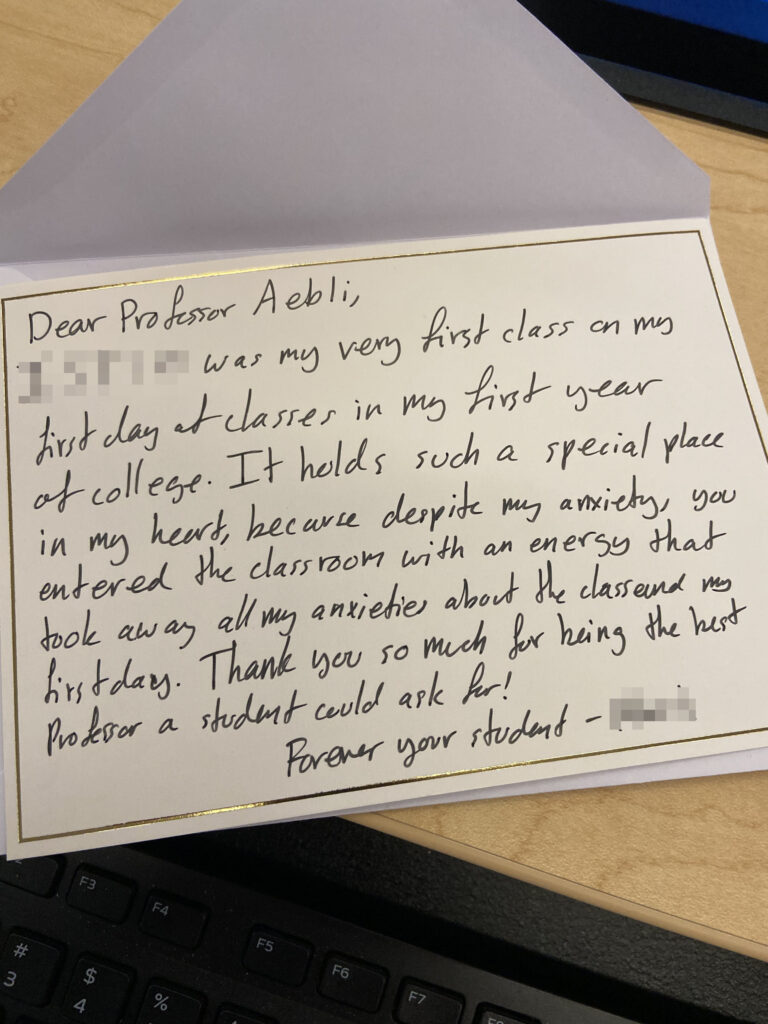 Dear Professor Aebli,
was my very first class on my
first day of classes in my first year
of college. It holds such a special place
in my heart, because despite my anxiety, you
entered the classroom with an energy that
took away all my anxieties about the class and my
first day. Thank you so much for being the best
Professor a student could ask for!
Forever your student -
F3
F4
F5
F6
F7
#
3
$
4
%